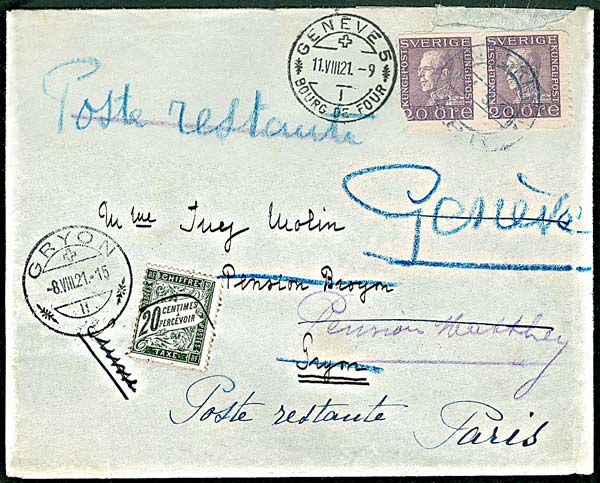 GENÈVE 5
11.VIII.21.-9
I
BOURG DE FOUR
SVERIGE SVERIGE
KUNGL.POST KUNGL.POST
20 ÖRE 20 ÖRE
Poste restante
Genève
Mme Lucy Molin
Pension Broyon
Pension Matthey
Gryon
Suisse
GRYON
-8.VIII.21.-15
II
CHIFFRE
20 CENTIMES
À PERCEVOIR
TAXE
Poste restante Paris